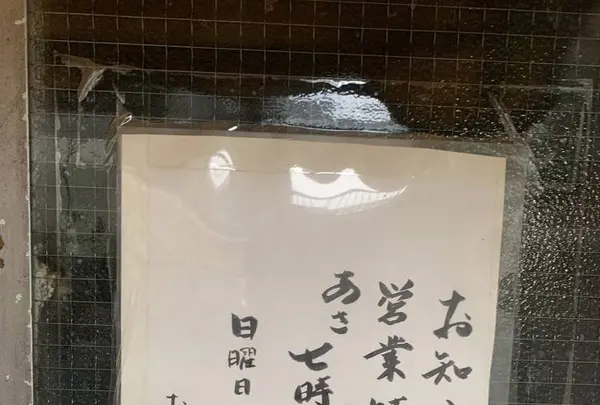 お知
営業
あさ七時
日曜日
お